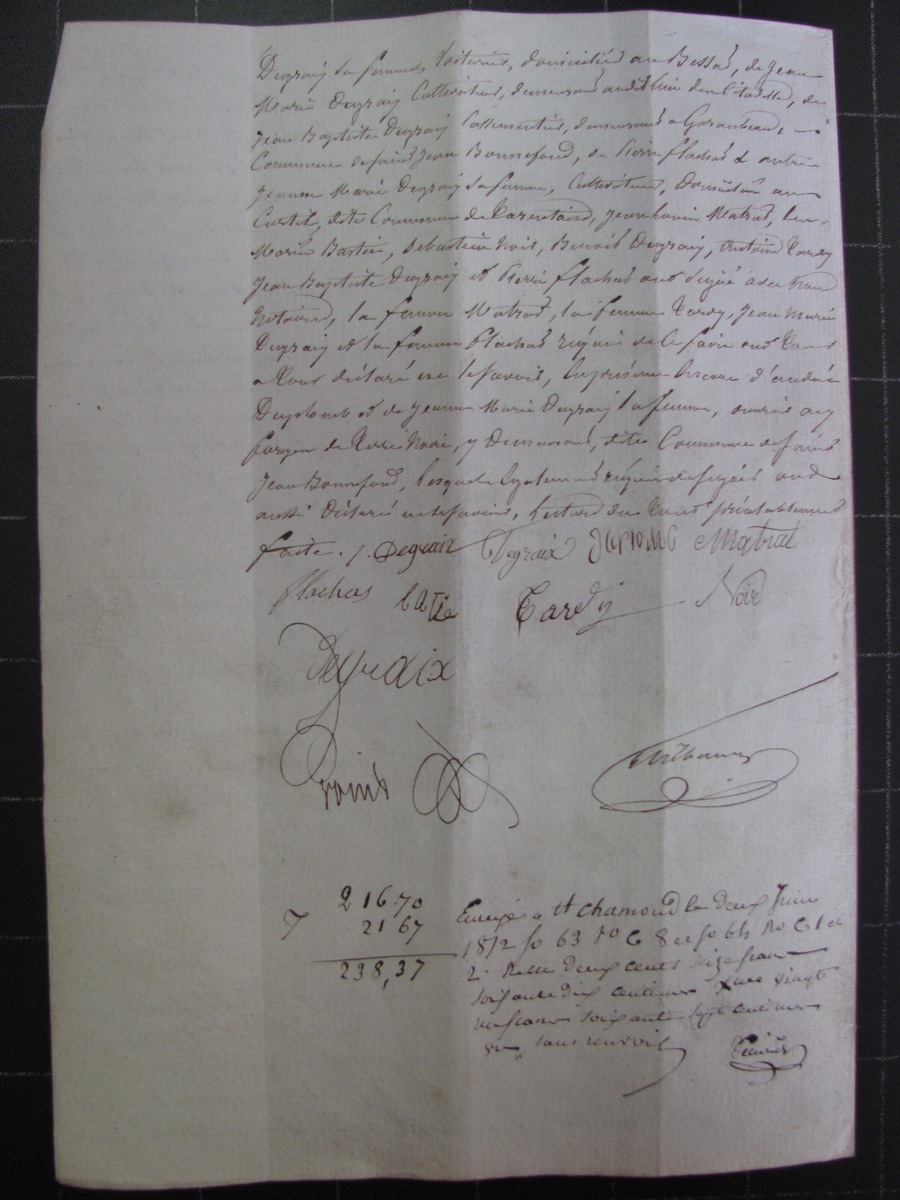 Degraix sa femme, Voituriers, domiciliés au Bessat, de Jean
Marie Degraix Cultivateur, demeurant audit lieu de la Citadelle, de
Jean Baptiste Degraix demeurant a Garambeau,
Commune de saint Jean Bonnefond, de Pierre flachat & autre
Jeanne Marie Degraix sa femme, Cultivateurs, Domiciliés au
dite Commune de Tarentaise, Matrat,
Marin Bastie, Sebastien Noir, Benoit Degraix, Antoine Tardy
Jean Baptiste Degraix et Pierre flachat ont signé avec nous
Notaires, la femme Matrat, la femme Tardy, Jean Marie
Degraix et la femme flachat requis de le faire ont tous
déclaré ne le savoir, en présence encore d'andré
Duplomb et de Jeanne Marie Degraix sa femme, ouvrier aux
forges de Terre Noire, y demeurant, dite Commune de saint
Jean Bonnefond, lesquels également requis de signer ont
aussi déclaré ne le savoir, lecture du tout préalablement
faite. J. Degraix Degraix Matrat
flachas batie Tardy Noir
Degraix
216.70
21 67
238,37
Enregé a St chamond le deux Juin
1812 fo 63 Vo C 8 et fo 64 Ro C 1 et
2. Reçu deux cents seize francs
soixante dix centimes vingt
un francs soixante sept centimes
sans renvoi